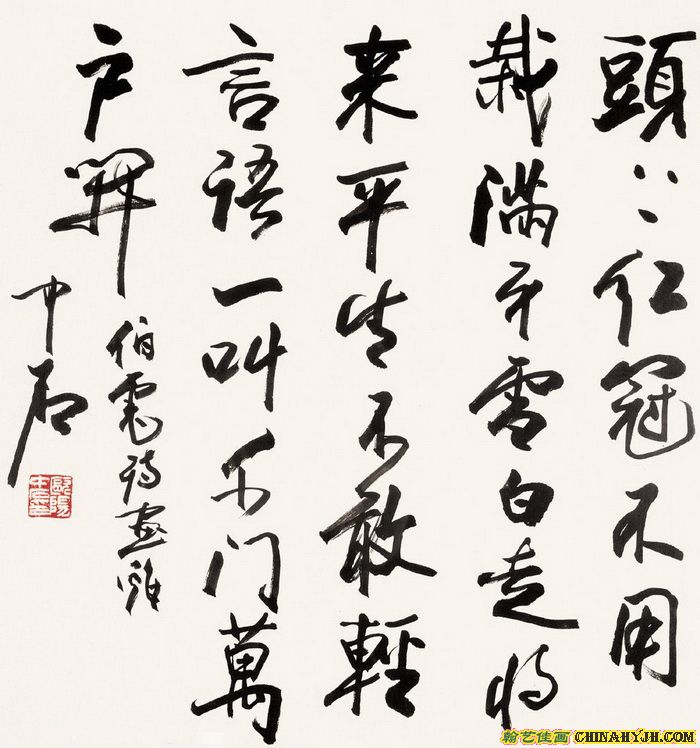 頭上红冠不用
裁滿身雪白走将
来平生不敢輕
言語一叫千门萬
户開
伯虎詩畫雞
中石
歐陽
翰艺佳画 CHINAHYJH.COM